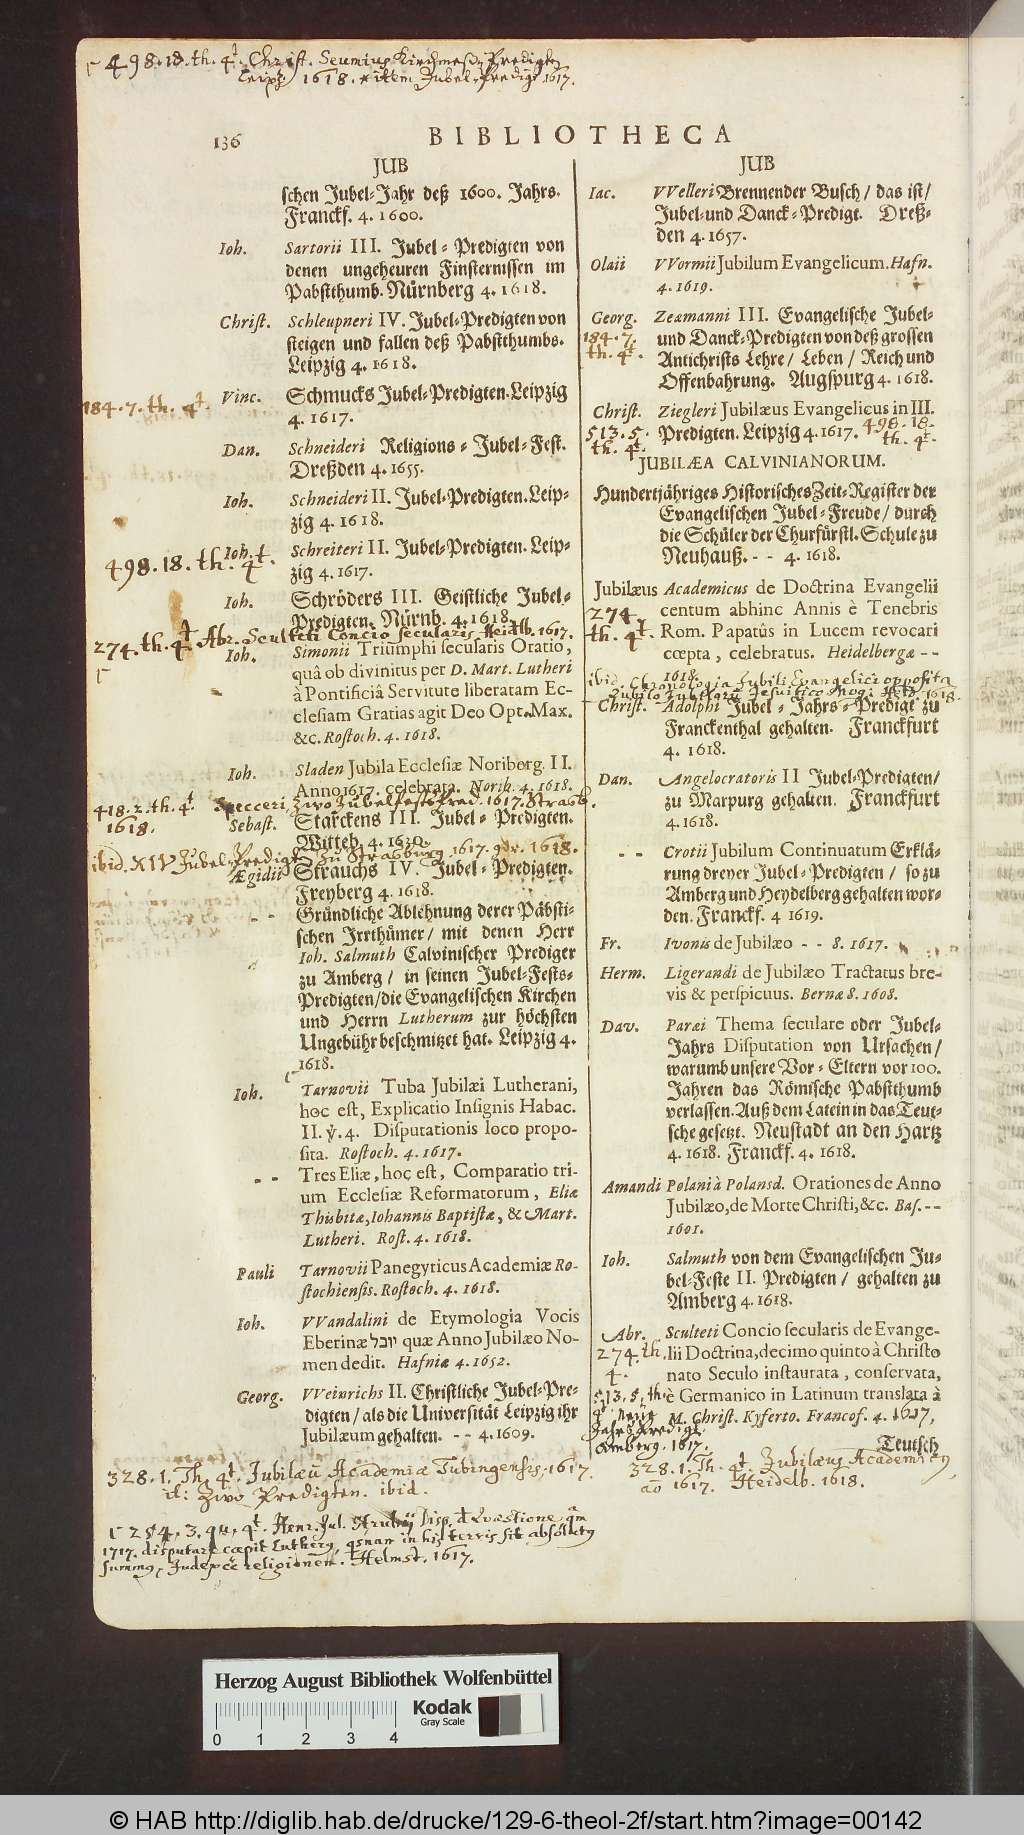 498.18.th.4t. Christ. Seumius Kirchmeß-Predigt
Leipz 1618. item Jubel-Predigt 1617.
136 BIBLIOTHECA
JUB
schen Jubel-Jahr deß 1600. Jahrs.
Franckf. 4. 1600.
Ioh. Sartorii III. Jubel-Predigten von
denen ungeheuren Finsternissen im
Pabstthumb. Nürnberg 4. 1618.
Christ. Schleupneri IV. Jubel-Predigten von
steigen und fallen deß Pabstthumbs.
Leipzig 4. 1618.
184.7.th.4t.
Vinc. Schmucks Jubel-Predigten. Leipzig
4. 1617.
Dan. Schneideri Religions-Jubel-Fest.
Dreßden 4. 1655.
Ioh. Schneideri II. Jubel-Predigten. Leip-
zig 4. 1618.
Ioh. Schreiteri II. Jubel-Predigten. Leip-
498.18.th.4t.
zig 4. 1617.
Ioh. Schröders III. Geistliche Jubel-
Predigten. Nürnb. 4. 1618.
274.th.4t. Abr. Sculteti Concio secularis Heidlb. 1617.
Ioh. Simonii Triumphi secularis Oratio,
quâ ob divinitus per D. Mart. Lutheri
à Pontificiâ Servitute liberatam Ec-
clesiam Gratias agit Deo Opt. Max.
&c. Rostoch. 4. 1618.
Ioh. Sladen Jubila Ecclesiæ Noriborg. II.
Anno 1617. celebrata. Norib. 4. 1618.
418.2.th.4t. Specceri Zwo Jubelfests Pred. 1617. Strasb.
1618.
Sebast. Starckens III. Jubel-Predigten.
Witteb. 4. 1630.
ibid. XIV Jubel-Predigt zu Strasburg 1617. 1618.
Ægidii Strauchs IV. Jubel-Predigten.
Freyberg 4. 1618.
- - Gründliche Ablehnung derer Päbsti-
schen Irrthümer/ mit denen Herr
Ioh. Salmuth Calvinischer Prediger
zu Amberg/ in seinen Jubel-Fests-
Predigten/ die Evangelischen Kirchen
und Herrn Lutherum zur höchsten
Ungebühr beschmitzet hat. Leipzig 4.
1618.
Ioh. Tarnovii Tuba Jubilæi Lutherani,
hoc est, Explicatio Insignis Habac.
II. ꝟ. 4. Disputationis loco propo-
sita. Rostoch. 4. 1617.
- - Tres Eliæ, hoc est, Comparatio tri-
um Ecclesiæ Reformatorum, Eliæ
Thisbitæ, Iohannis Baptistæ, & Mart.
Lutheri. Rost. 4. 1618.
Pauli Tarnovii Panegyricus Academiæ Ro-
stochiensis. Rostoch. 4. 1618.
Ioh. VVandalini de Etymologia Vocis
Ebetinæ יובל quæ Anno Jubilæo No-
men dedit. Hafniæ 4. 1652.
Georg. VVeinrichs II. Christliche Jubel-Pre-
digten/ als die Universität Leipzig ihr
Jubilæum gehalten. - - 4. 1609.
328.1.Th.4t. Jubilæū Academiæ Tubingensis, 1617.
it: Zwo Predigten. ibid.
254.3.qu.4t. Henr. Jul. Disp. Quæstione.
1717. disputare cœpit in his terris sit
religionem. Helmst. 1617.
JUB
Iac. VVelleri Brennender Busch/ das ist/
Jubel- und Danck-Predigt. Dreß-
den 4. 1657.
Olaii VVormii Jubilum Evangelicum. Hafn.
4. 1619.
Georg. Zeæmanni III. Evangelische Jubel-
184.7.
th.4t.
und Danck-Predigten von deß grossen
Antichrists Lehre/ Leben/ Reich und
Offenbahrung. Augspurg 4. 1618.
Christ. Ziegleri Jubilæus Evangelicus in III.
513.5.
th.4t.
Predigten. Leipzig 4. 1617. 498.18.
th.4t.
JUBILÆA CALVINIANORUM.
Hundertjähriges Historisches Zeit-Register der
Evangelischen Jubel-Freude/ durch
die Schüler der Churfürstl. Schule zu
Neuhauß. - - 4. 1618.
Jubilæus Academicus de Doctrina Evangelii
274.
th.4t.
centum abhinc Annis è Tenebris
Rom. Papatûs in Lucem revocari
cœpta, celebratus. Heidelbergæ - -
1618.
ibid. Chronologia Jubili Evangelici opposita
Jubilo Jubilarū Jesuitico Mog: 1618.
Christ. Adolphi Jubel-Jahrs-Predigt zu
Franckenthal gehalten. Franckfurt
4. 1618.
Dan. Angelocratoris II Jubel-Predigten/
zu Marpurg gehalten. Franckfurt
4. 1618.
- - Crotii Jubilum Continuatum Erklä-
rung dreyer Jubel-Predigten/ so zu
Amberg und Heydelberg gehalten wor-
den. Franckf. 4 1619.
Fr. Ivonis de Jubilæo - - 8. 1617.
Herm. Ligerandi de Jubilæo Tractatus bre-
vis & perspicuus. Bernæ 8. 1608.
Dav. Paræi Thema seculare oder Jubel-
Jahrs Disputation von Ursachen/
warumb unsere Vor-Eltern vor 100.
Jahren das Römische Pabstthumb
verlassen. Auß dem Latein in das Teut-
sche gesetzt. Neustadt an den Hartz
4. 1618. Franckf. 4. 1618.
Amandi Polani à Polansd. Orationes de Anno
Jubilæo, de Morte Christi, &c. Bas. - -
1601.
Ioh. Salmuth von dem Evangelischen Ju-
bel-Feste II. Predigten/ gehalten zu
Amberg 4. 1618.
Abr. Sculteti Concio secularis de Evange-
274.th.
4.
lii Doctrina, decimo quinto à Christo
nato Seculo instaurata, conservata,
513.5.th.
è Germanico in Latinum translata à
M. Christ. Kyferto. Francof. 4. 1617,
4t neue
Jahrs Predigt
Amberg. 1617.
Teutsch
328.1.Th.4t. Jubilæus Academicus
ao 1617. Heidelb. 1618.
Herzog August Bibliothek Wolfenbüttel
0 1 2 3 4
Kodak
Gray Scale
© HAB http://diglib.hab.de/drucke/129-6-theol-2f/start.htm?image=00142